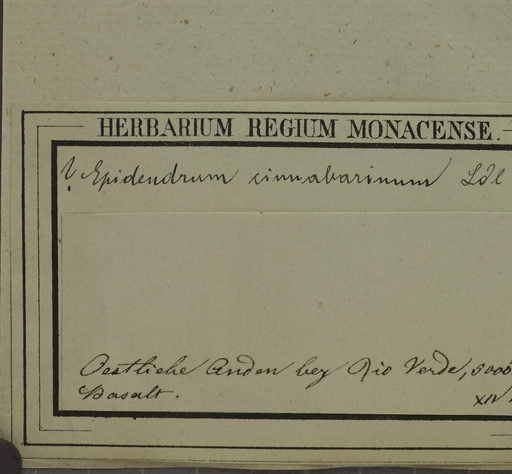 HERBARIUM REGIUM MONACENSE.
? Epidendrum cinnabarinum Ldl
Oestliche Anden bey Rio Verde, 5000
Basalt.
XII